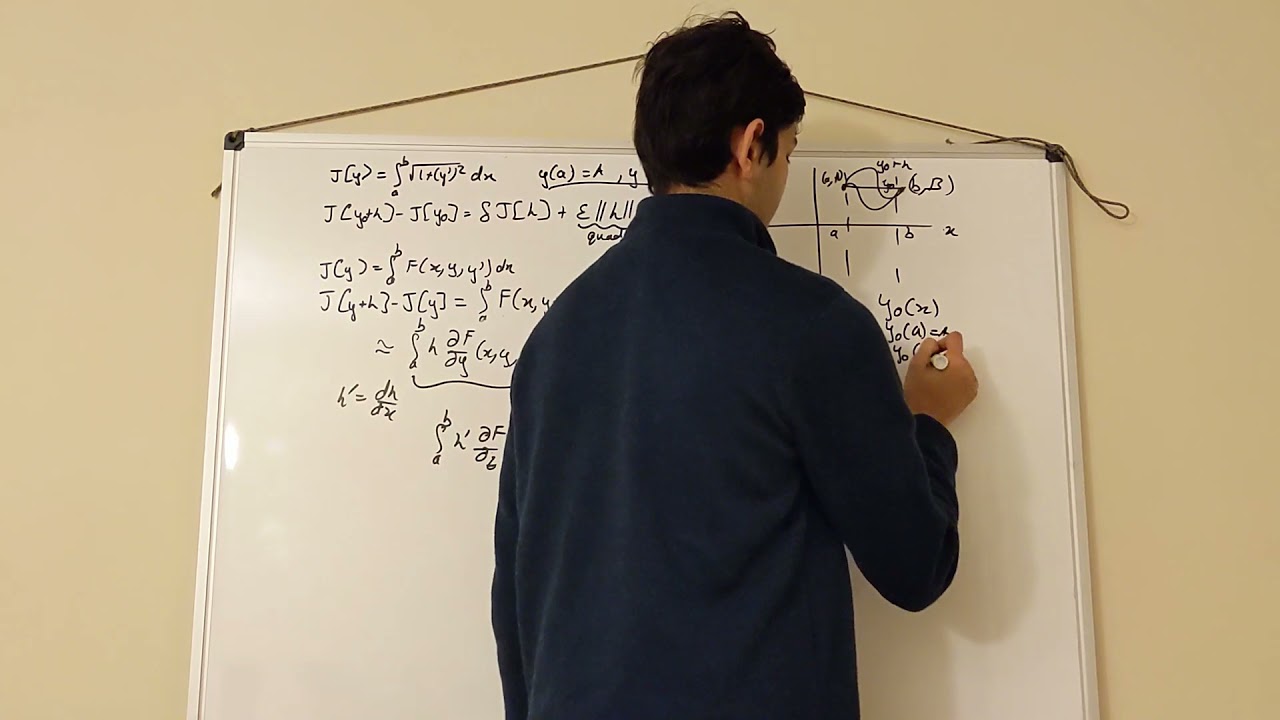 J[y) = ∫ₐᵇ √1+(y')² dx   y(a) = A , y
J[y₀+h] - J[y₀] = δJ[h] + ε||h||
quad
J[y) = ∫ₐᵇ F(x, y, y') dx
J[y+h] - J[y] = ∫ₐᵇ F(x, y
≈ ∫ₐᵇ h ∂F/∂y (x, y,
h' = dh/dx
∫ₐᵇ h' ∂F
y₀+h
y₀
(b, B)
a b x
y₀(x)
y₀(a) =
y₀(